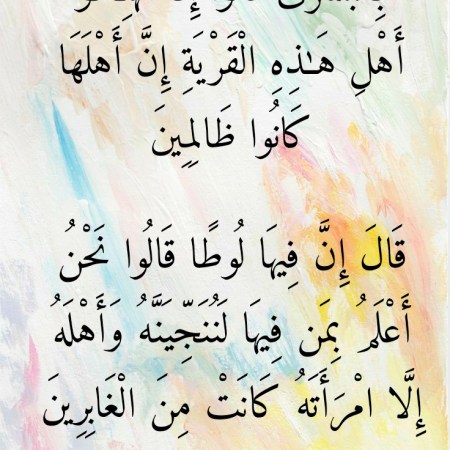 أَهْلِ هَـٰذِهِ الْقَرْيَةِ إِنَّ أَهْلَهَا
كَانُوا ظَالِمِينَ
قَالَ إِنَّ فِيهَا لُوطًا قَالُوا نَحْنُ
أَعْلَمُ بِمَن فِيهَا لَنُنَجِّيَنَّهُ وَأَهْلَهُ
إِلَّا امْرَأَتَهُ كَانَتْ مِنَ الْغَابِرِينَ